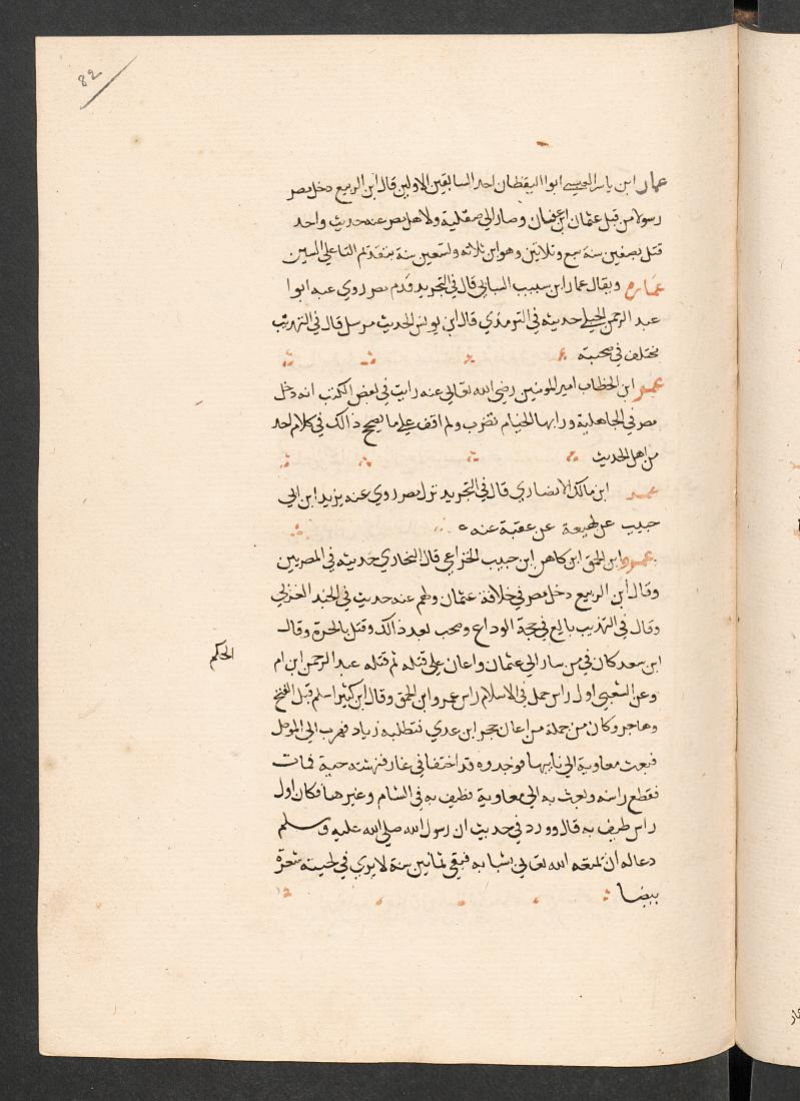 82
عمار ابن ياسر العبسي ابوا اليقظان احد السابقين الاولين قال ابن الربيع دخل مصر
رسولا من قبل عثمان ابن عفان وصار الى صقلية ولاهل مصر عنه حديث واحد
قتل بصفين سنة سبع وثلاثين وهو ابن ثلاثه وتسعين سنة بتقدتم التا على السين
عمارة ويقال عمار ابن سبيب السباي قال في التجريد قدم مصر روي عنه ابوا
عبد الرحمن الحبلي حديثه في الترمذي قال ابن يونس الحديث مرسل قال في التهذيب
مختلف في صحبته
عمر ابن الخطاب امير المومنين رضي الله تعالى عنه رايت في بعض الكتب انه دخل
مصر في الجاهلية ورا بها الخيام تضرب ولم اقف على ما يصحح ذالك في كلام احد
من اهل الحديث
عمر ابن مالك الانصاري قال في التجريد نزل مصر روي عنه يزيد ابن ابي
حبيب عن لهيعة عن عقبة عنه
عمرو ابن الحمق ابن كاهن ابن حبيب الخزاعي قال البخاري حديثه في المصريين
وقال ابن الربيع دخل مصر في خلافة عثمان ولهم عنه حديث في الجند الغربي
وقال في التهذيب بايع في حجة الوداع وصحب بعد ذالك وقتل بالحرة وقال
ابن سعد كان في من سار الى عثمان واعان على قتله ثم قتله عبد الرحمن ابن ام
الحكم
وعن الشعبي اول راس حمل في الاسلام راس عمرو ابن الحمق وقال ابن كثير اسلم قبل الفتح
وهاجر وكان من جملة من اعان حجر ابن عدي فتطلبه زياد فهرب الى الموصل
فبعث معاوية الى نايبها فوجدوه قد اختفا في غار فنهشته حية فمات
فقطع راسه وبعث به الى معاوية فطيف به في الشام وغيرها فكان اول
راس طيف به قال وورد في حديث ان رسول الله صلى الله عليه وسلم
دعا له ان يمتعه الله تعالى بشبابه فبقي ثمانين سنة لا يري في لحيته شعرة
بيضا